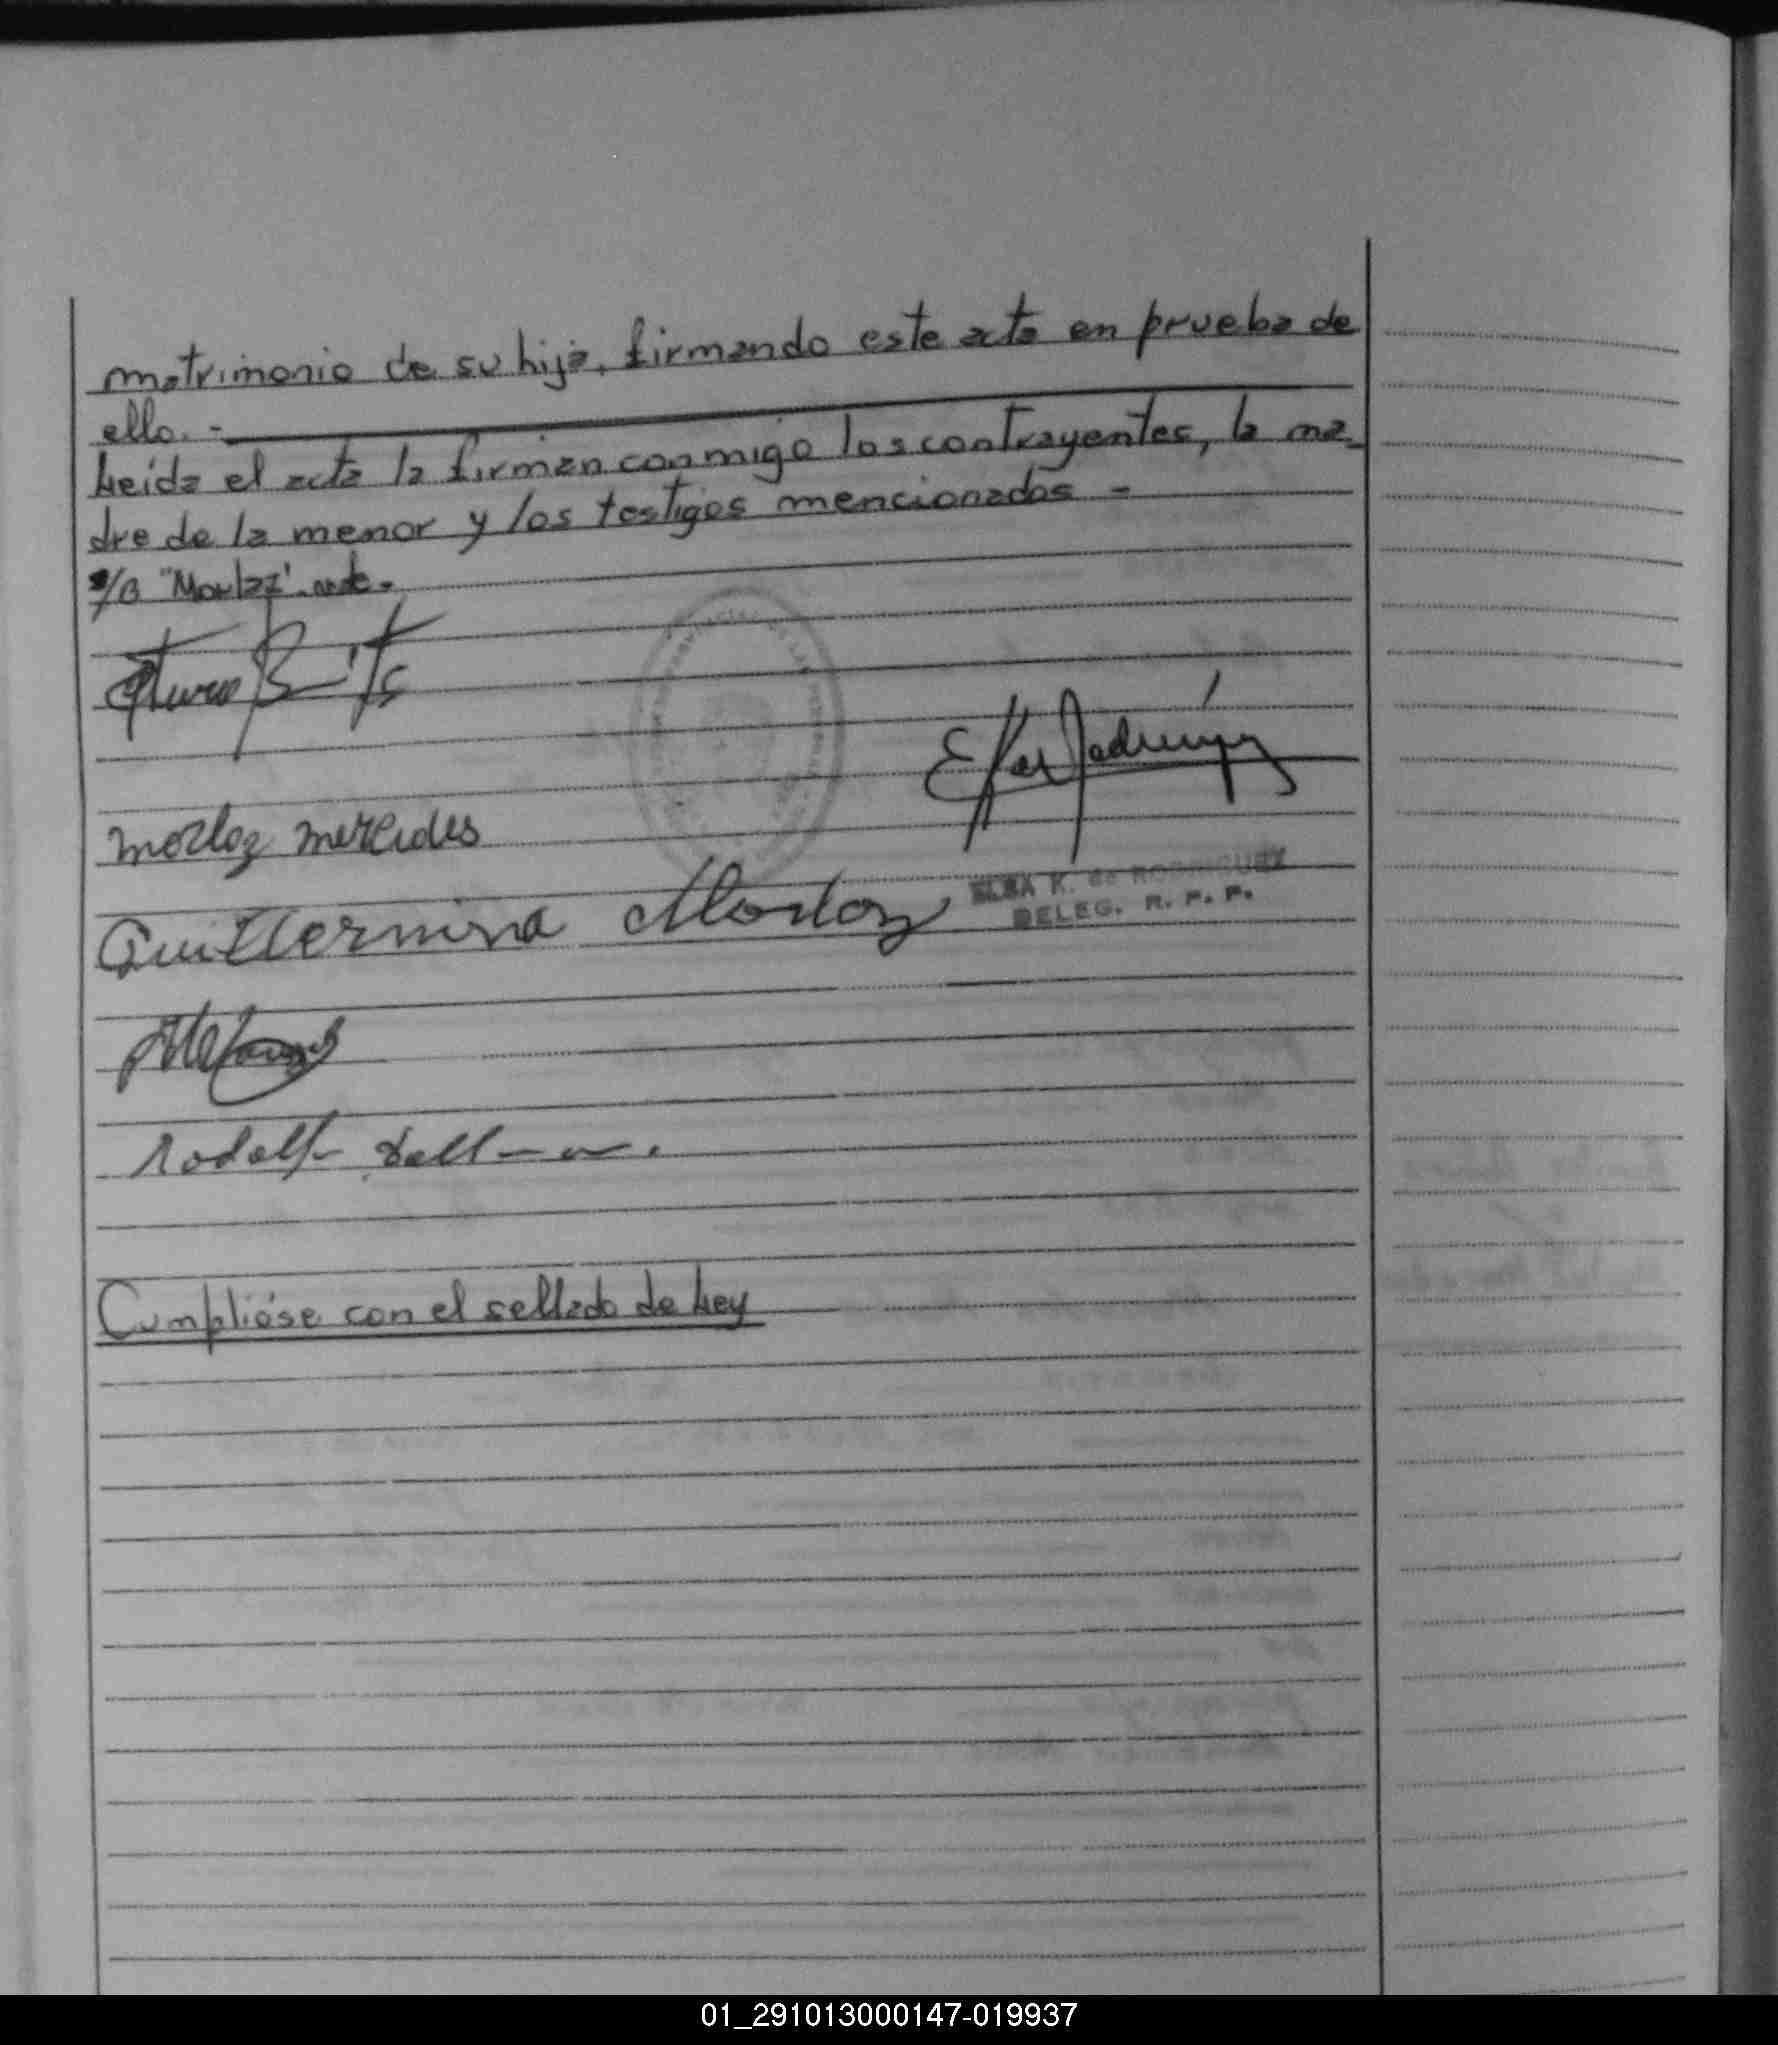 matrimonio de su hija, firmando este acta en prueba de
ello.-
Leida el acta la firman conmigo los contrayentes, la ma-
dre de la menor y los testigos mencionados -
s/b "Morloz".
morloz mercedes
Guillermina Morloz
ELBA K. de RODRIGUEZ
DELEG. R. P. P.
Rodolfo
Cumplióse con el sellado de Ley
01_291013000147-019937